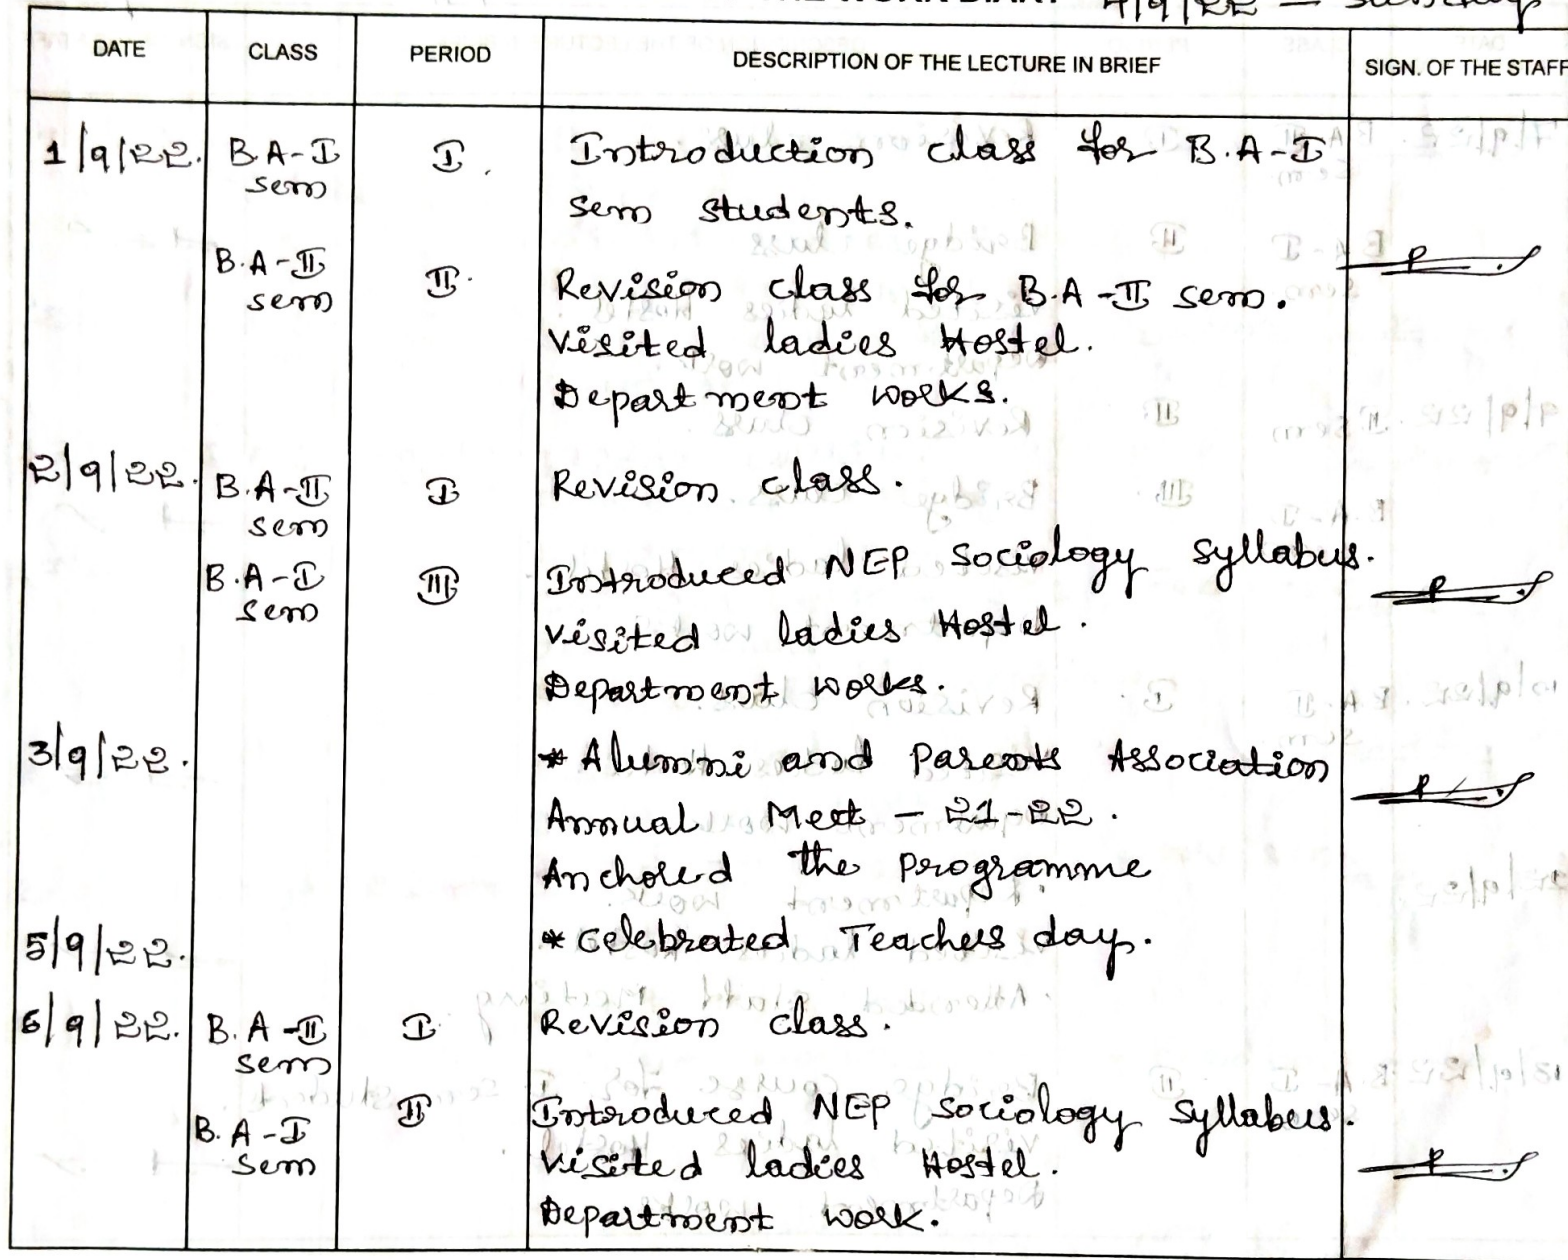 WORK DIARY 4/9/22 — Sunday
DATE CLASS PERIOD DESCRIPTION OF THE LECTURE IN BRIEF SIGN. OF THE STAFF
1/9/22. B.A-I I. Introduction class for B.A-I
sem sem students.
B.A-II
sem II. Revision class for B.A-II sem.
Visited ladies Hostel.
Department works.
2/9/22. B.A-II I Revision class.
sem
B.A-I III Introduced NEP Sociology Syllabus.
sem
Visited ladies Hostel.
Department works.
3/9/22. * Alumni and Parents Association
Annual Meet - 21-22.
Anchored the programme
5/9/22. * Celebrated Teachers day.
6/9/22. B.A-II I Revision class.
sem
B.A-I II Introduced NEP Sociology Syllabus.
sem Visited ladies Hostel.
Department work.